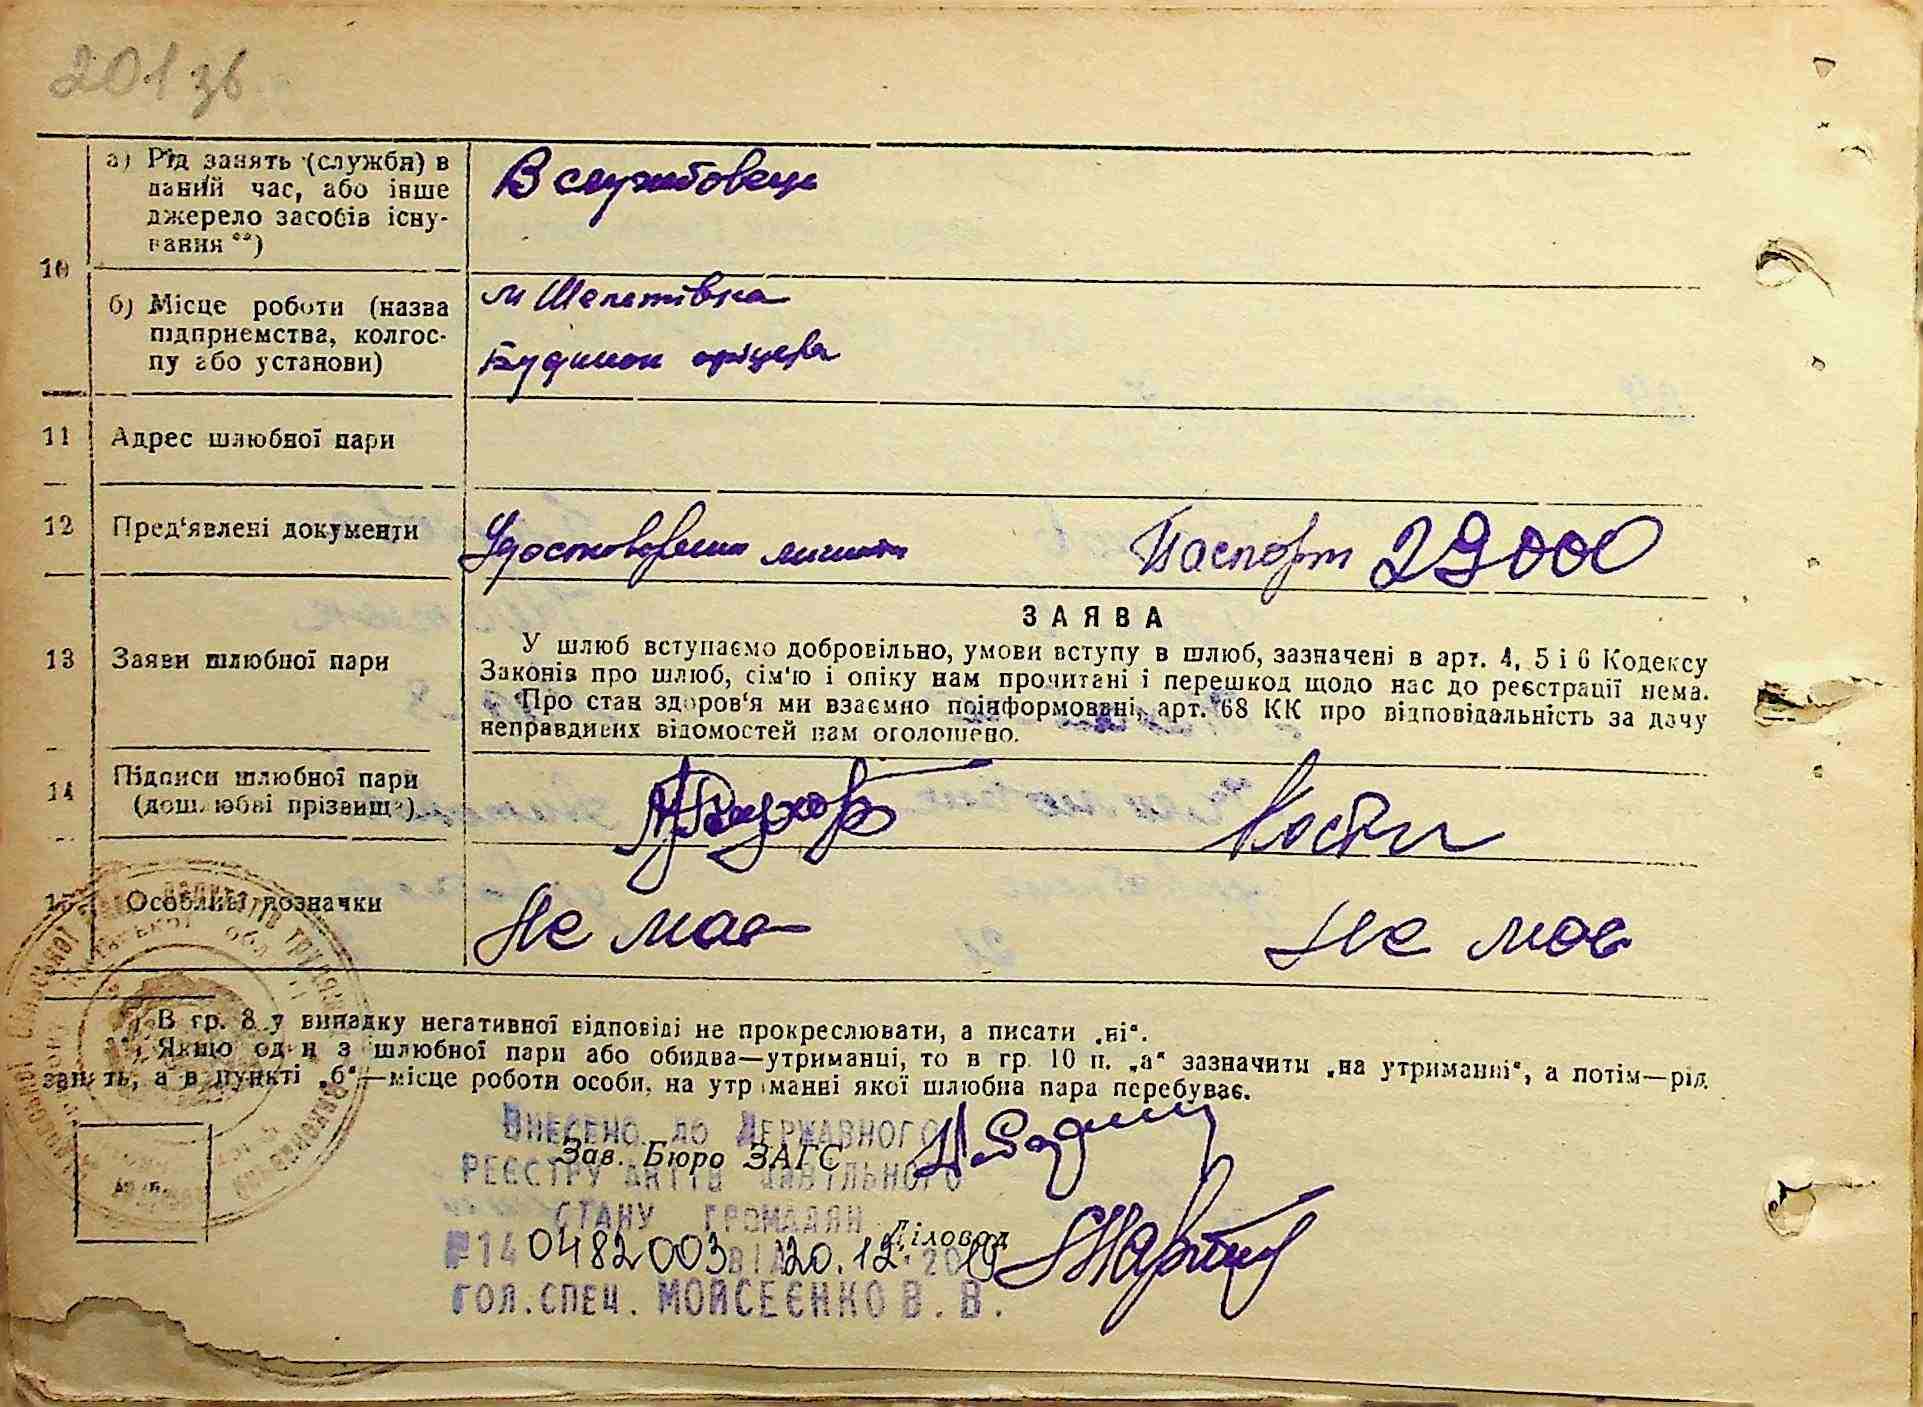 201 зв
10
а) Рід занять (служби) в
даний час, або інше
джерело засобів існу-
вання **)
В службовець
б) Місце роботи (назва
підприємства, колгос-
пу або установи)
м Шепетівка
Будинок офіцера
11 Адрес шлюбної пари
12 Пред'явлені документи
Паспорт 29000
13 Заяви шлюбної пари
ЗАЯВА
У шлюб вступаємо добровільно, умови вступу в шлюб, зазначені в арт. 4, 5 і 6 Кодексу
Законів про шлюб, сім'ю і опіку нам прочитані і перешкод щодо нас до реєстрації нема.
Про стан здоров'я ми взаємно поінформовані, арт. 68 КК про відповідальність за дачу
неправдивих відомостей нам оголошено.
14 Підписи шлюбної пари
(дошлюбні прізвища)
15 Особливі позначки
Не має Не має
*) В гр. 8 у випадку негативної відповіді не прокреслювати, а писати „ні“.
**) Якщо один з шлюбної пари або обидва—утриманці, то в гр. 10 п. „а“ зазначити „на утриманні“, а потім—рід
занять, а в пункті „б“—місце роботи особи, на утриманні якої шлюбна пара перебуває.
Зав. Бюро ЗАГС
Діловод
ВНЕСЕНО ДО ДЕРЖАВНОГО
РЕЄСТРУ АКТІВ ЦИВІЛЬНОГО
СТАНУ ГРОМАДЯН
№14 0482003 ВІД 20.12.20
ГОЛ.СПЕЦ. МОЙСЕЄНКО В. В.